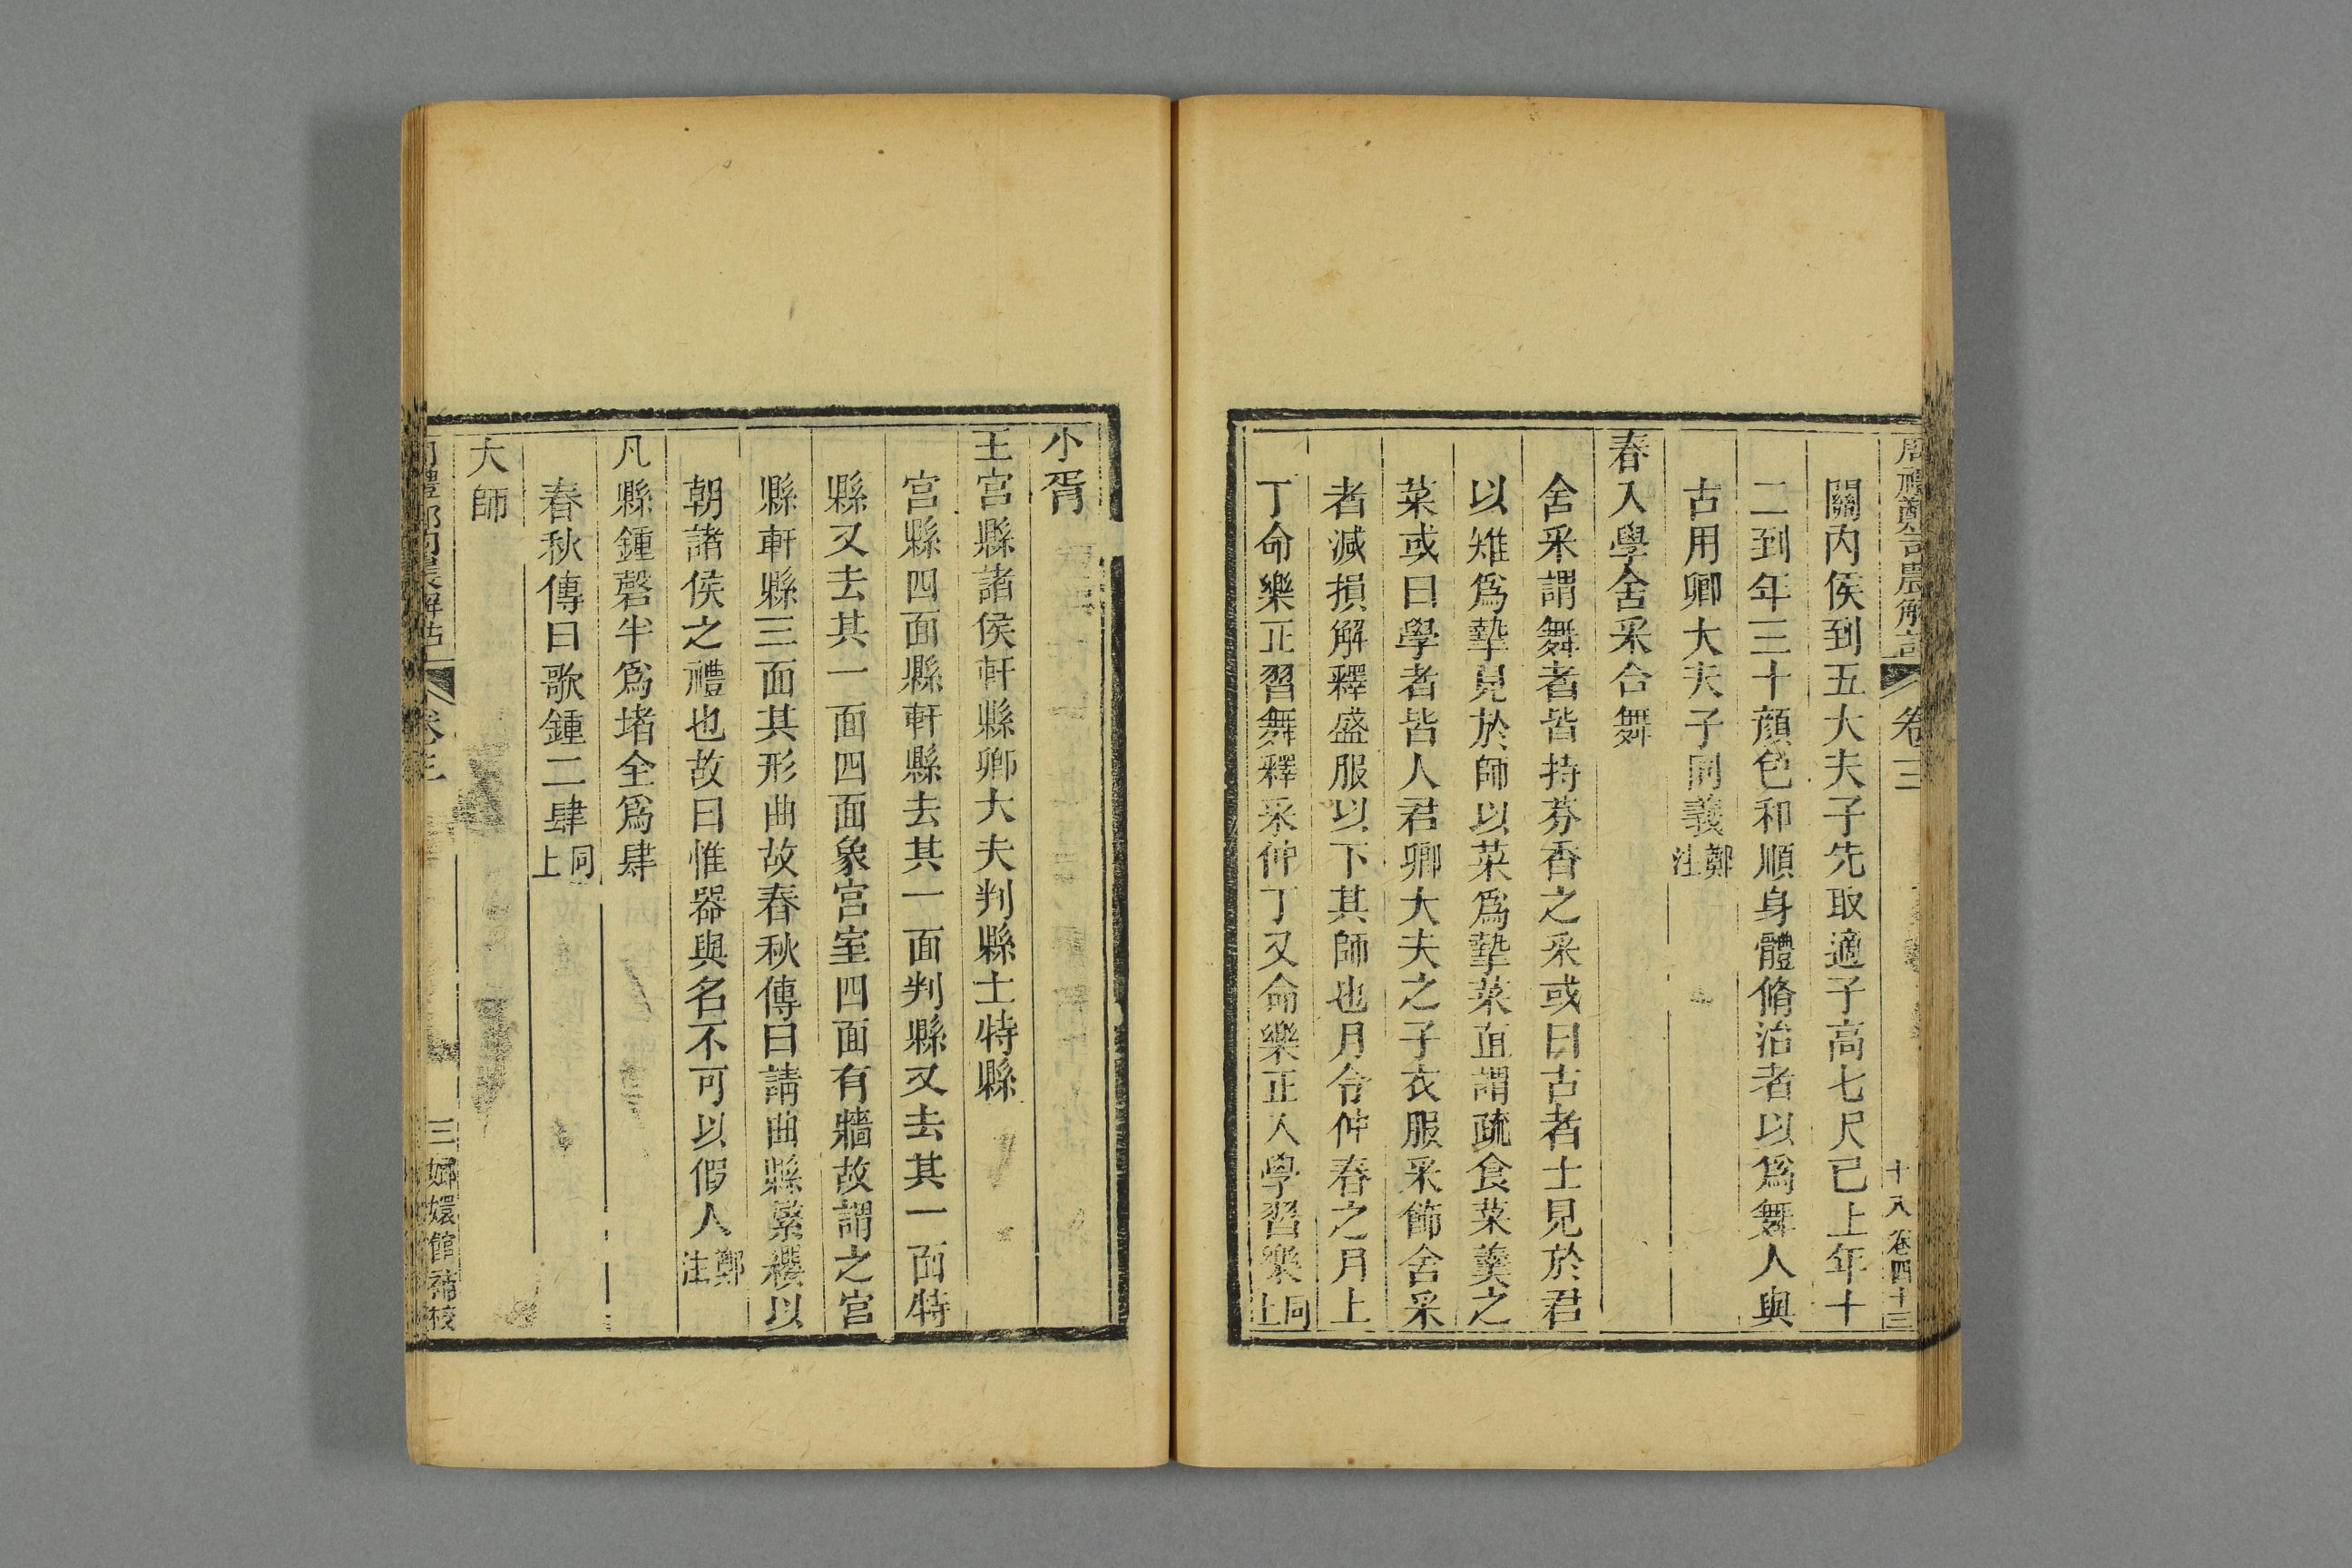 周禮鄭司農解詁 卷三 十八 卷四十三
關內侯到五大夫子先取適子高七尺已上年十
二到年三十顏色和順身體脩治者以爲舞人與
古用卿大夫子同義鄭注
春入學舍采合舞
舍采謂舞者皆持芬香之采或曰古者士見於君
以雉爲摯見於師以菜爲摯菜直謂疏食菜羹之
菜或曰學者皆人君卿大夫之子衣服采飾舍采
者減損解釋盛服以下其師也月令仲春之月上
丁命樂正習舞釋采仲丁又命樂正入學習樂同上
小胥
王宮縣諸侯軒縣卿大夫判縣士特縣
宮縣四面縣軒縣去其一面判縣又去其一面特
縣又去其一面四面象宮室四面有牆故謂之宮
縣軒縣三面其形曲故春秋傳曰請曲縣繁纓以
朝諸侯之禮也故曰惟器與名不可以假人鄭注
凡縣鍾磬半爲堵全爲肆
春秋傳曰歌鍾二肆同上
大師
周禮鄭司農解詁 卷三 三 嫏嬛館補校